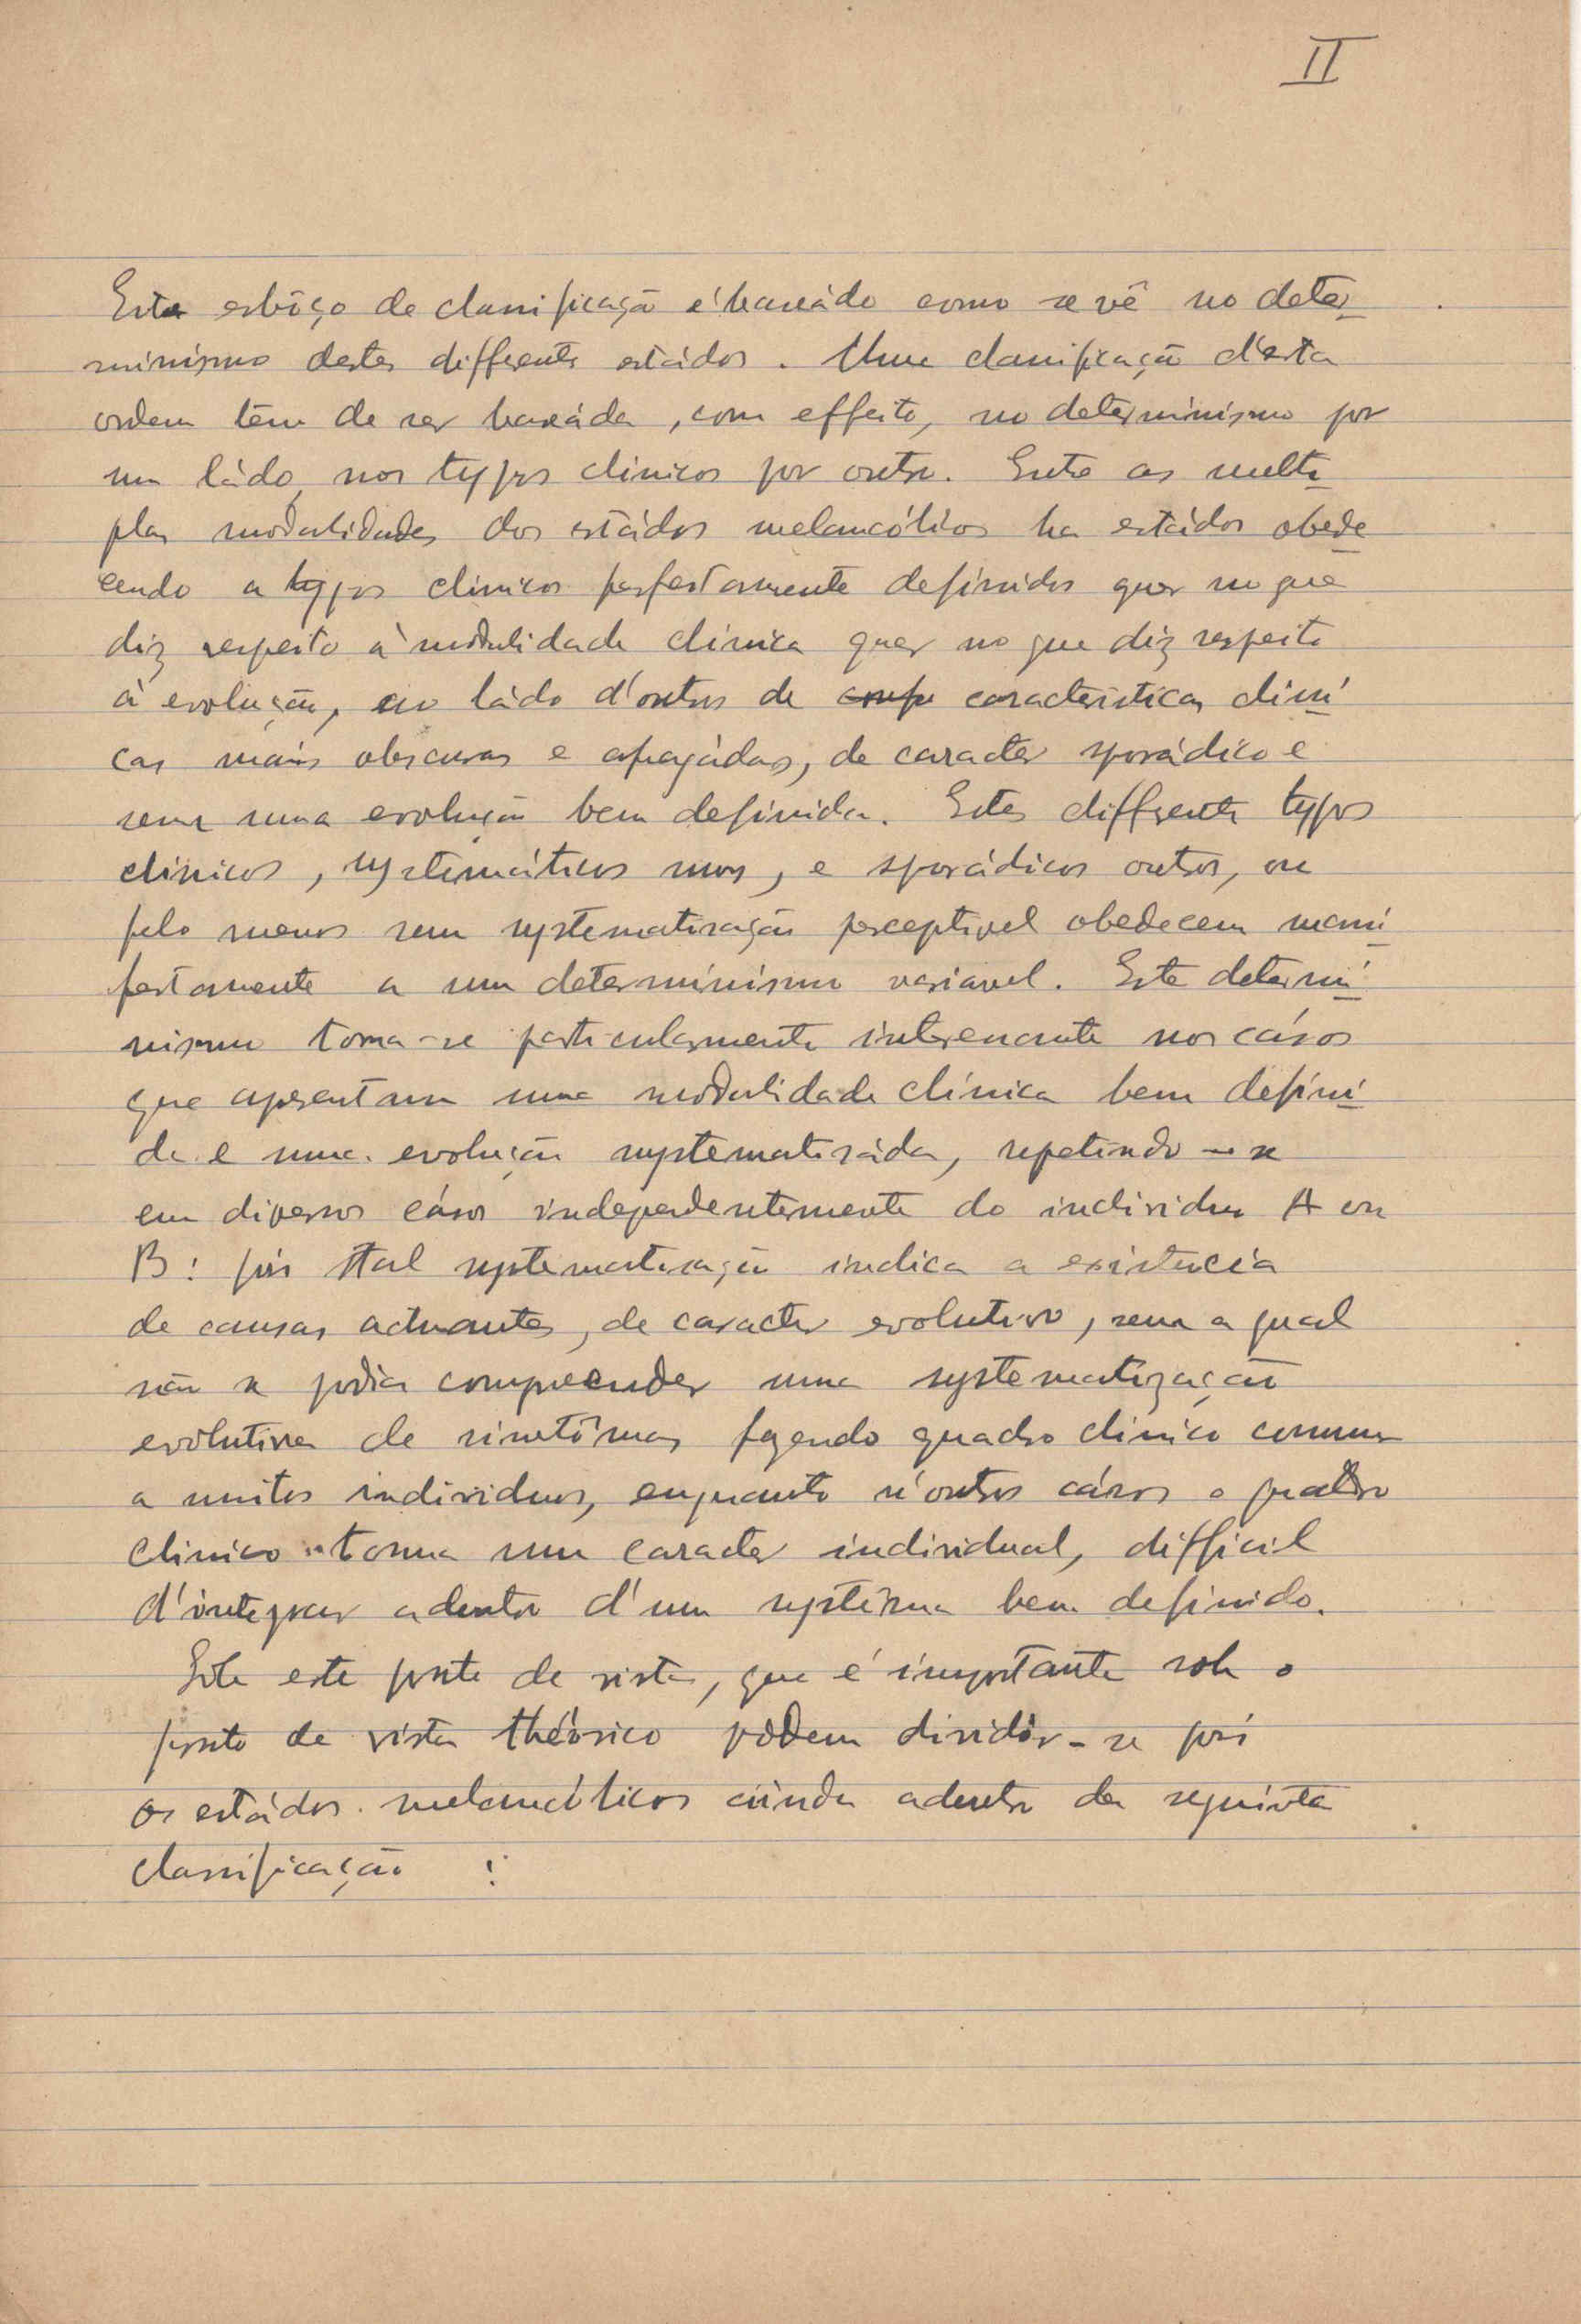 II
Este esbôço de classificação é baseádo como se vê no deter
minismo destes differentes estádos. Uma classificação d'esta
ordem tem de ser baseáda, com effeito, no determinismo por
um ládo, nos typos clinicos por outro. Entre as multi
plas modalidades dos estádos melancólicos ha estádos obede
cendo a typos clinicos perfeitamente definidos quer no que
diz respeito à modalidade clínica quer no que diz respeito
à evolução, ao ládo d'outros de caracteristicas clini
cas mais obscuras e apagádas, de caracter sporádico e
sem uma evolução bem definida. Estes differentes typos
clínicos, systemáticos uns, e sporádicos outros, ou
pelo menos sem systematisação perceptivel obedecem mani
festamente a um determinismo variavel. Este determi
nismo torna-se particularmente interessante nos cásos
que apresentam uma modalidade clínica bem defini
da e uma evolução systematisáda, repetindo-se
em diversos cásos independentemente do individuo A ou
B: pois tal systematisação indica a existencia
de causas actuantes, de caracter evolutivo, sem a qual
não se podia compreender uma systematização
evolutiva de sintômas fazendo quadro clinico commum
a muitos individuos, enquanto n'outros cásos o quadro
clinico toma um caracter individual, difficil
d'integrar adentro d'um systêma bem definido.
Sob este ponto de vista, que é importante sob o
ponto de vista theórico pódem dividir-se pois
os estádos melancólicos ainda adentro da seguinte
classificação :